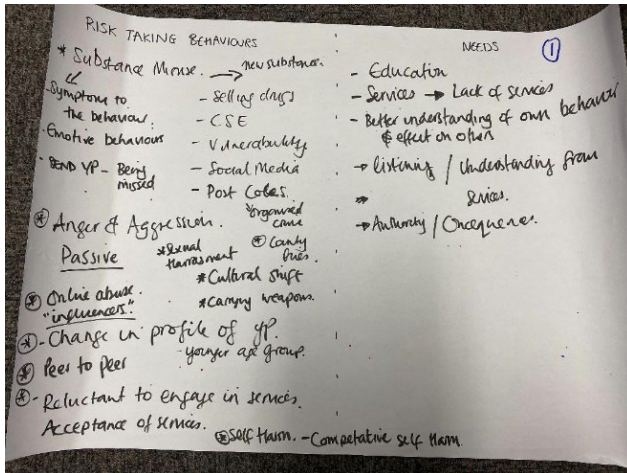 RISK TAKING BEHAVIOURS
* Substance Misuse. → new substances.
Symptoms to
the behaviour.
- Emotive behaviours
- SEND YP - Being
missed
- Selling drugs
- CSE
- Vulnerability
- Social Media
- Post Codes.
* organised
crime
* Anger & Aggression.
Passive
* Sexual
Harrasment
* County
lines
* Cultural shift
* Carrying weapons.
* Online abuse.
"influencers."
* - Change in profile of YP.
- younger age group.
* Peer to peer
* - Reluctant to engage in services.
Acceptance of services.
* Self Harm. - Competative self Harm.
NEEDS
1
- Education
- Services → Lack of services
- Better understanding of own behaviour
& effect on others
→ listening / Understanding from
services.
→ Authority / Consequences.